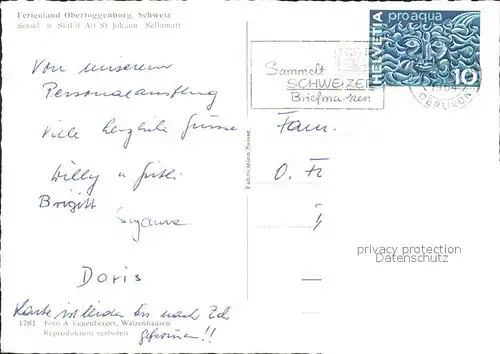 Ferienland Obertoggenburg, Schweiz
Sessel- u Skilift Alt St. Johann - Sellamatt
HELVETIA
pro aqua
10
Sammelt
SCHWEIZER
Briefmarken
OERLIKON
Von unserem
Personalausflug
viele herzliche Grüsse
Willy u
Brigitt
Suzanne
Doris
Karte ist leider bis nach Zch
gefroren!!
Fam.
O. Fi
Fabrication Suisse
privacy protection
Datenschutz
1781 Foto A. Eggenberger, Walzenhausen
Reproduktion verboten